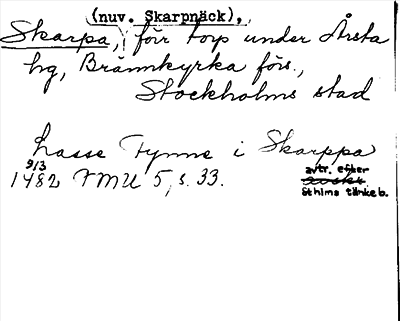 (nuv. Skarpnäck),
Skarpa, förr torp under Årsta
hg, Brännkyrka förs.,
Stockholms stad
Lasse Tynne i Skarppa
9/3
1482 FMU 5, s. 33.
avtr. efter
Sthlms tänkeb.